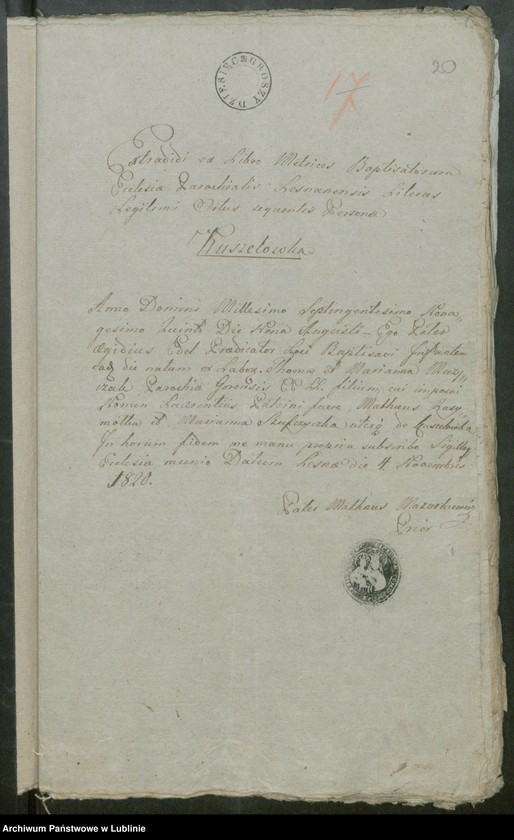 DZIESIĘC GROSZY
20
17
Extradidi ex Libro Metrices Baptisatorum
Ecclesia Parochialis Lesnanensis Literas
Legitimi Ortus sequentis Personæ
Kuszelowka
Anno Domini Millesimo Septingentesimo Nona
gesimo Quinto Die Nona Augusti – Ego Pater
Ægidius Prædicator Loci Baptisavi Infantem
die natum ex Labor. Thoma et Marianna
Parochia CC. LL. filium, cui imposui
Nomen Laurentius Patrini fuere Mathæus
et Marianna de
In horum fidem me manu propria subscribo Sigillo
Ecclesia munio Datum Lesnæ die 4. Novembris
1820.
Pater Mathæus Mazurkiewicz
Prior
Archiwum Państwowe w Lublinie